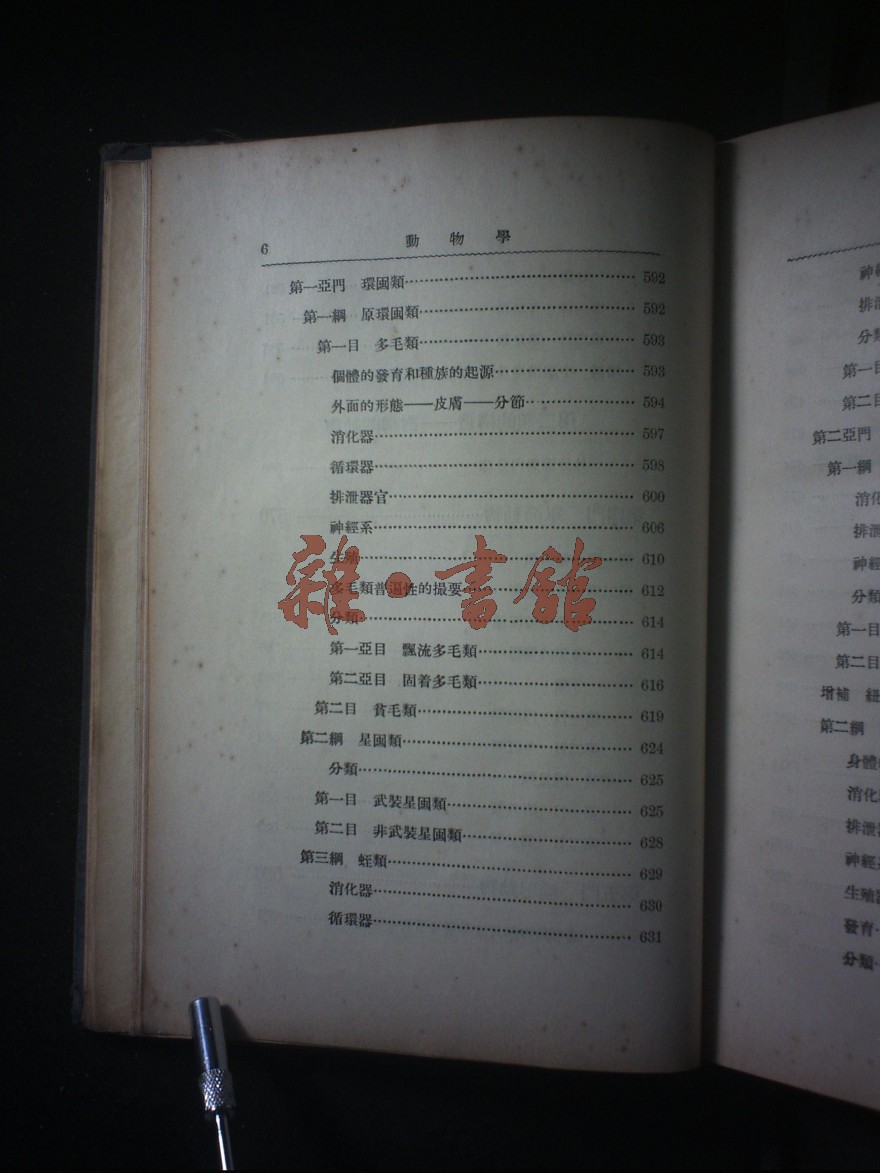 6 動物學
第一亞門 環圓類 592
第一綱 原環圓類 592
第一目 多毛類 593
個體的發育和種族的起源 593
外面的形態——皮膚——分節 594
消化器 597
循環器 598
排泄器官 600
神經系 606
生殖 610
多毛類普遍性的撮要 612
分類 614
第一亞目 飄流多毛類 614
第二亞目 固着多毛類 616
第二目 貧毛類 619
第二綱 星圓類 624
分類 625
第一目 武裝星圓類 625
第二目 非武裝星圓類 628
第三綱 蛭類 629
消化器 630
循環器 631
雜·書館
神
排泄
分類
第一目
第二目
第二亞門
第一綱
消化
排泄
神經
分類
第一目
第二目
增補 紐
第二綱
身體
消化
排泄
神經
生殖器
發育
分類